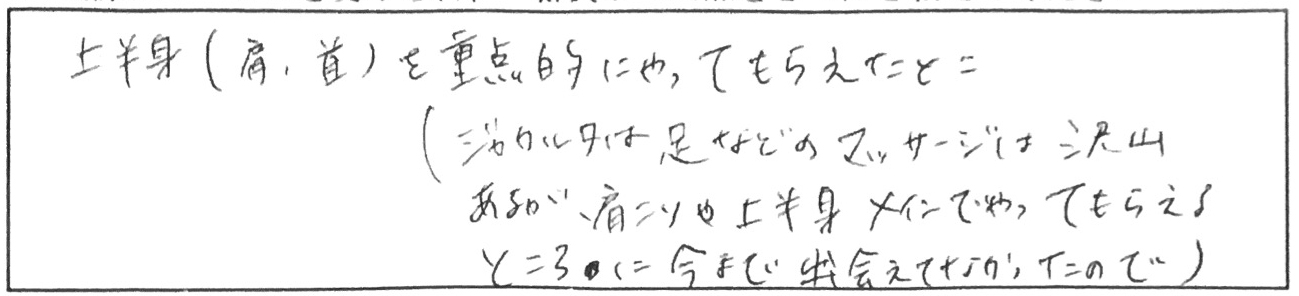 上半身(肩、首)を重点的にやってもらえたこと
(ジャカルタは足などのマッサージは沢山
あるが、肩こりや上半身メインでやってもらえる
ところに今まで出会えてなかったので)